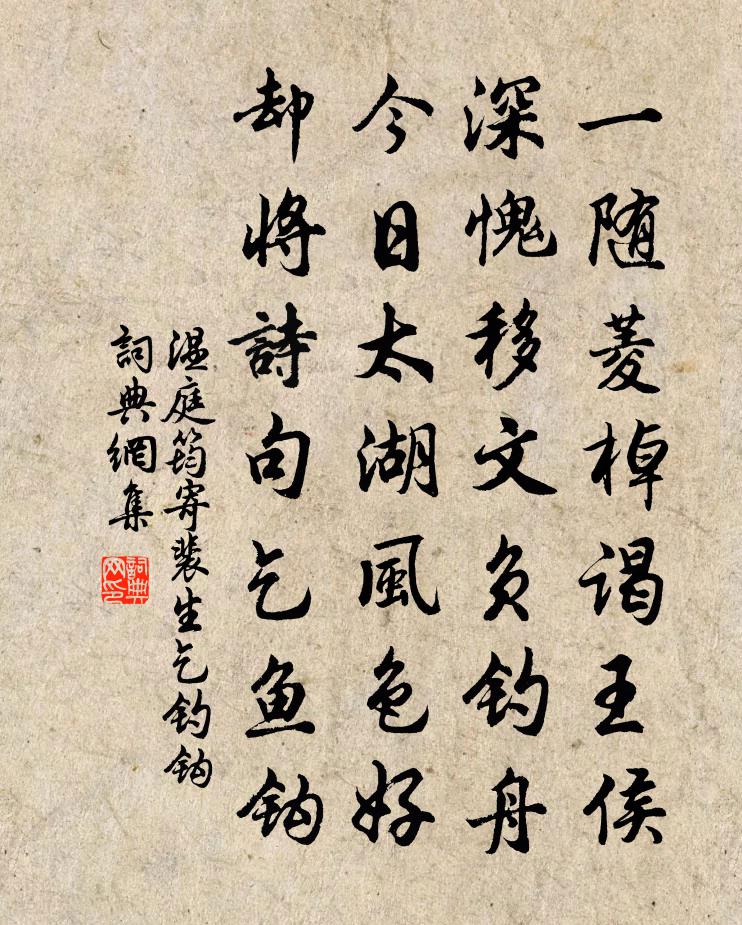 一随菱棹谒王侯
深愧移文负钓舟
今日太湖風色好
却将詩句乞鱼鈎
温庭筠寄裴生乞钓钩
詞典網集
詞典网印